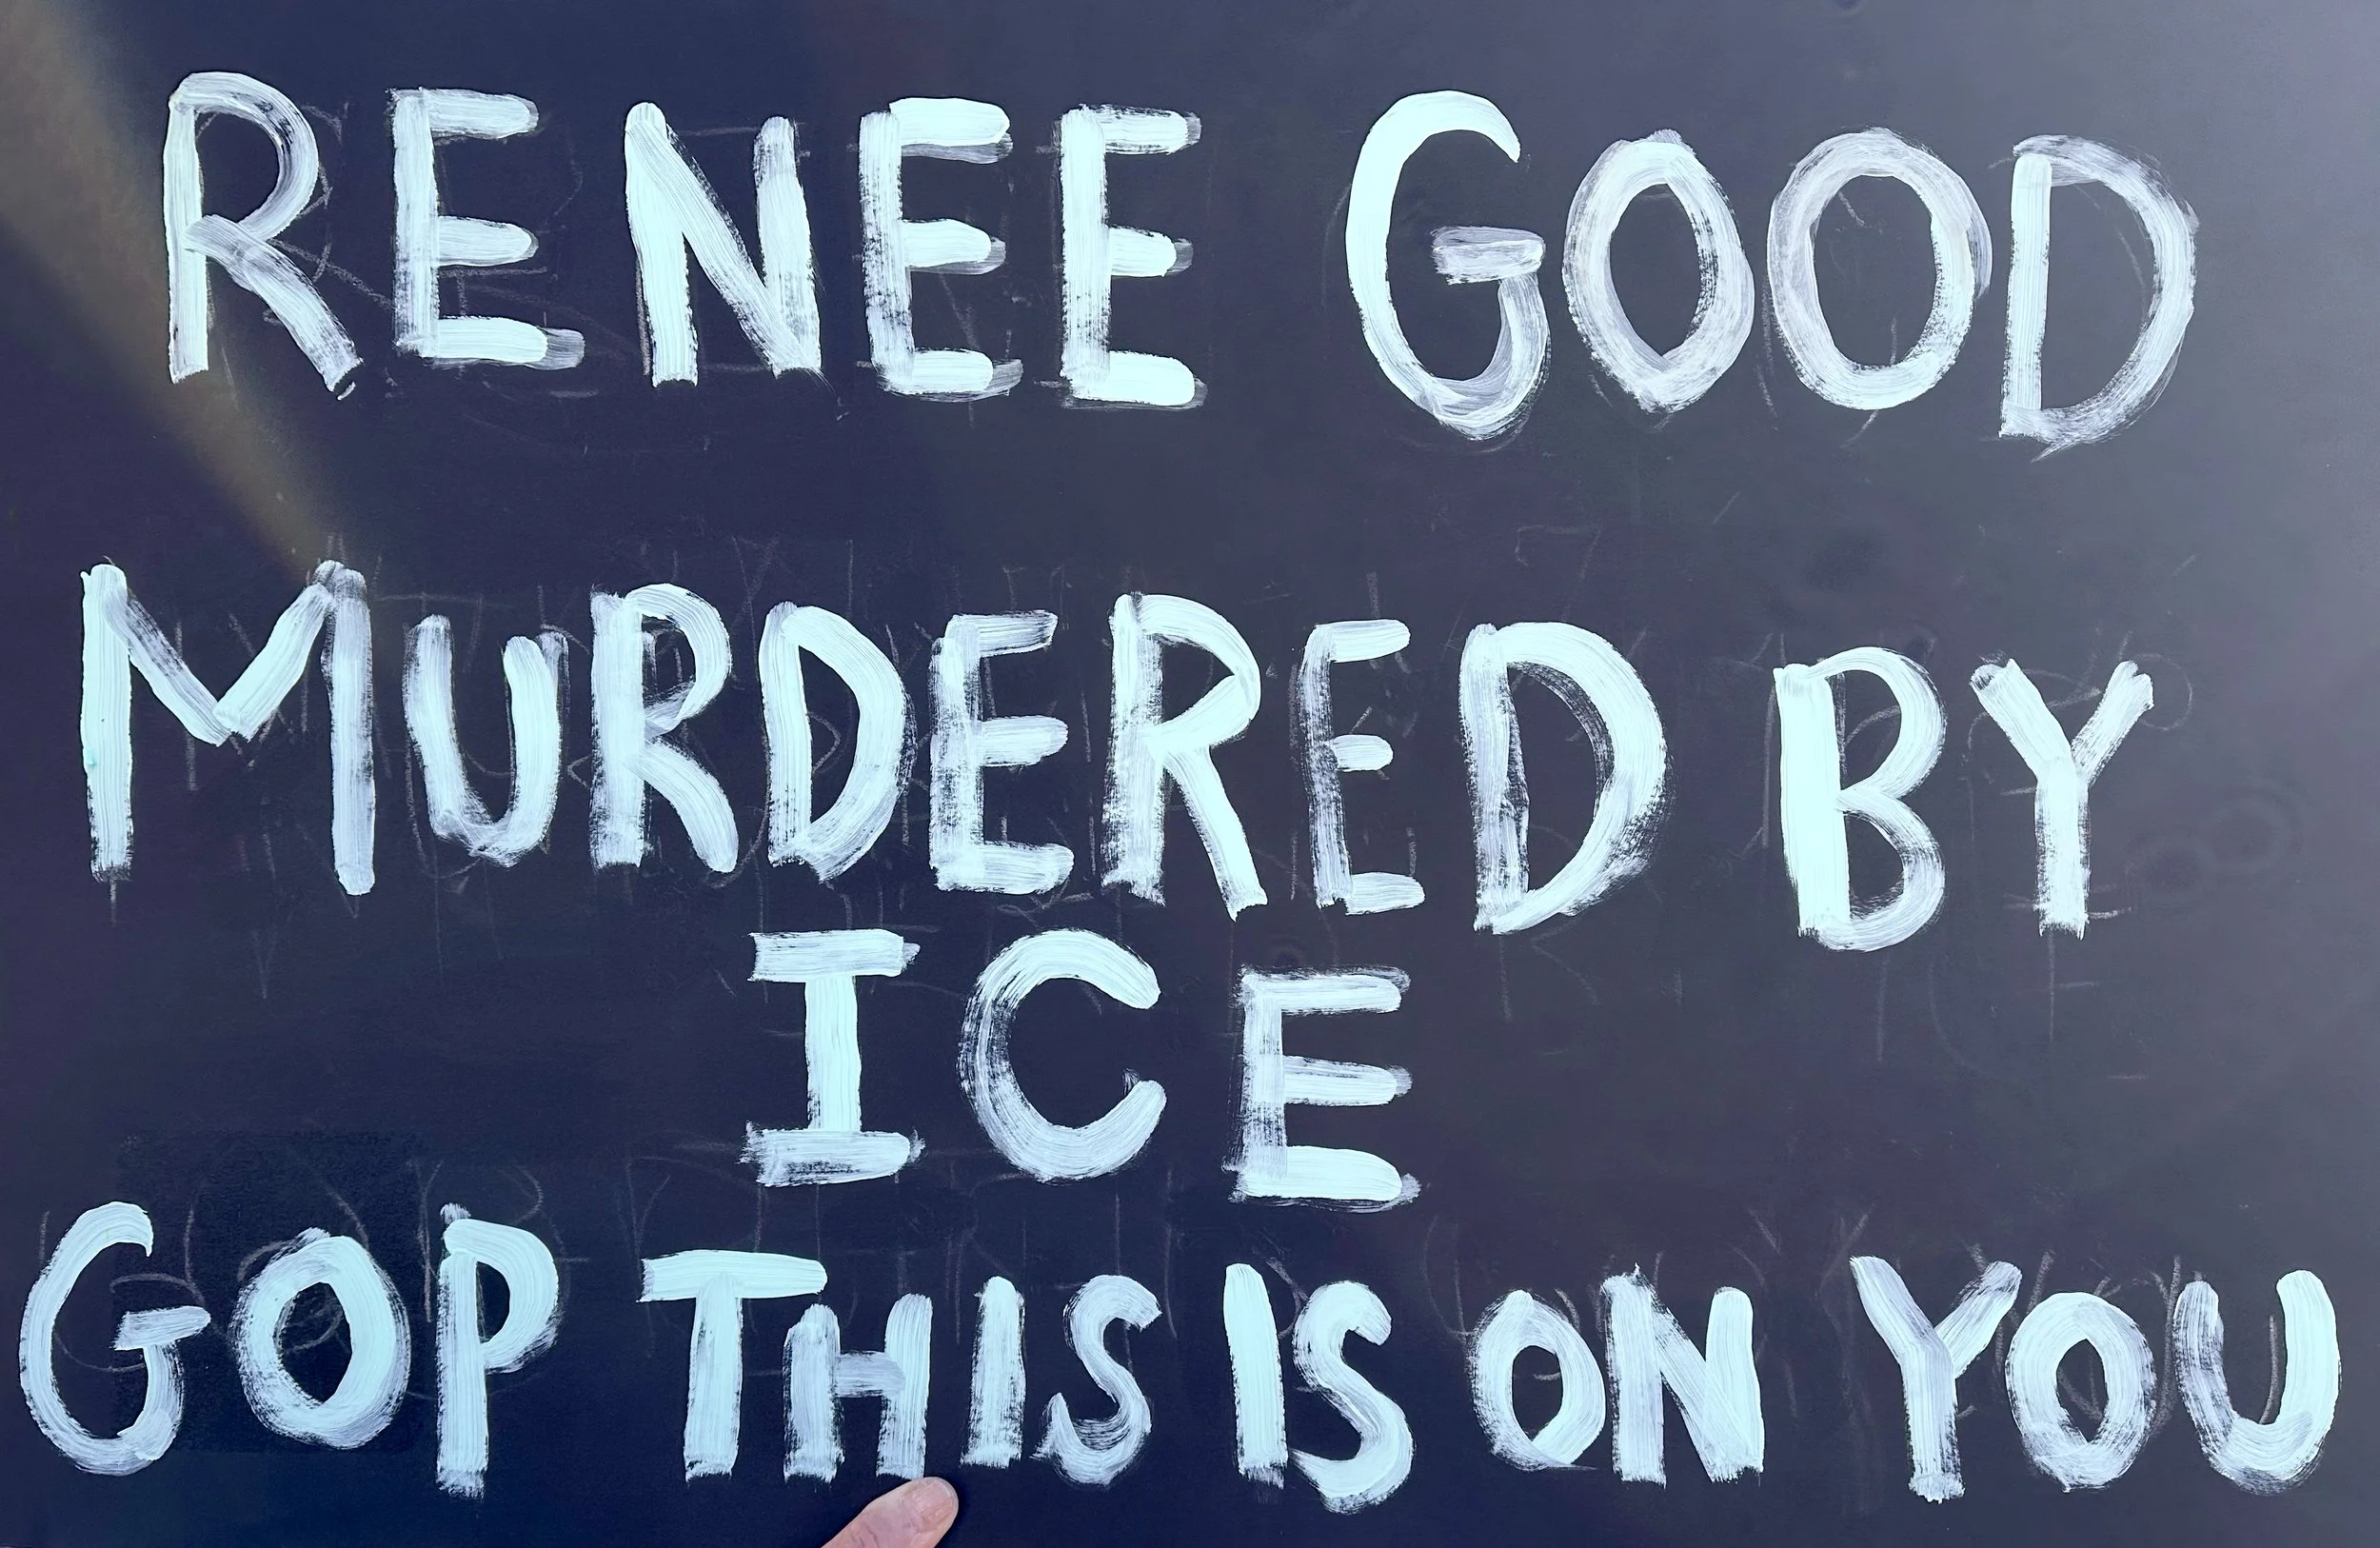 RENEE GOOD
MURDERED BY
ICE
GOP THIS IS ON YOU